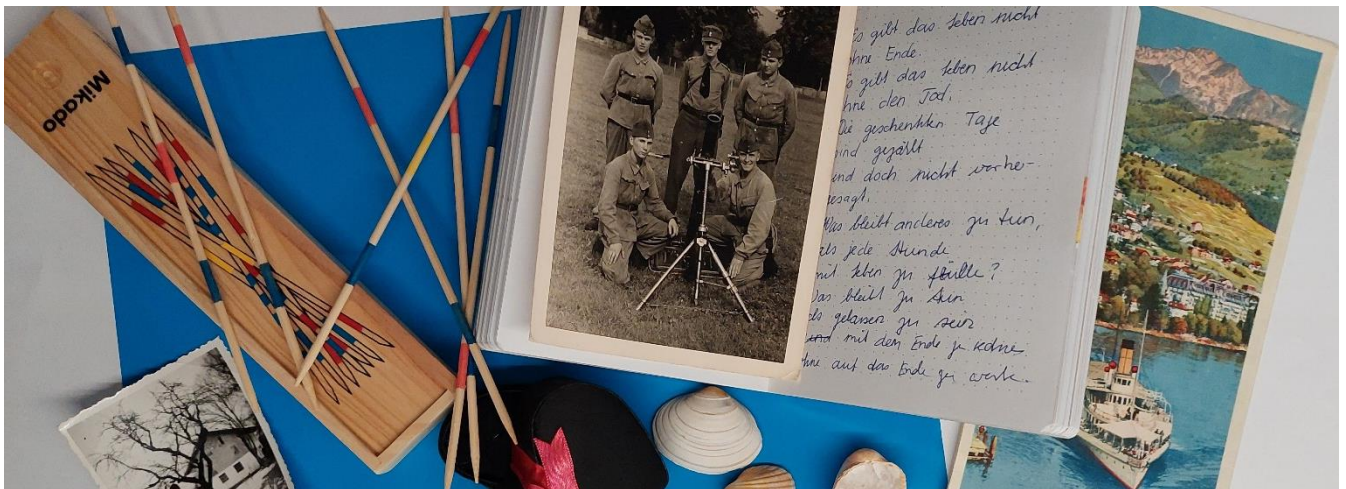 Mikado
Es gibt das Leben nicht
ohne Ende.
Es gibt das Leben nicht
ohne den Tod.
Die geschenkten Tage
sind gezählt
und doch nicht vorher-
gesagt.
Was bleibt anderes zu tun,
als jede Stunde
mit Leben zu fülle?
Was bleibt zu tun
als gelassen zu sein
und mit dem Ende zu
ohne auf das Ende zu